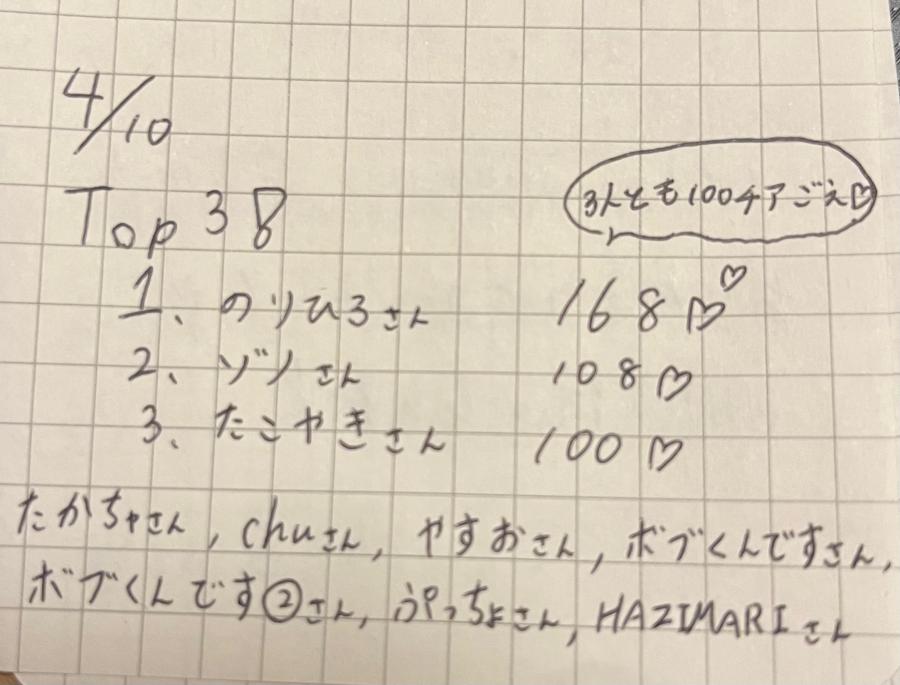 4/10
3人とも100チアごえ♡
Top 3 8
1、のりひろさん 168♡♡
2、ゾノさん 108♡
3、たこやきさん 100♡
たかちゃさん, chuさん, やすおさん, ボブくんですさん,
ボブくんです②さん, ぷっちょさん, HAZIMARIさん